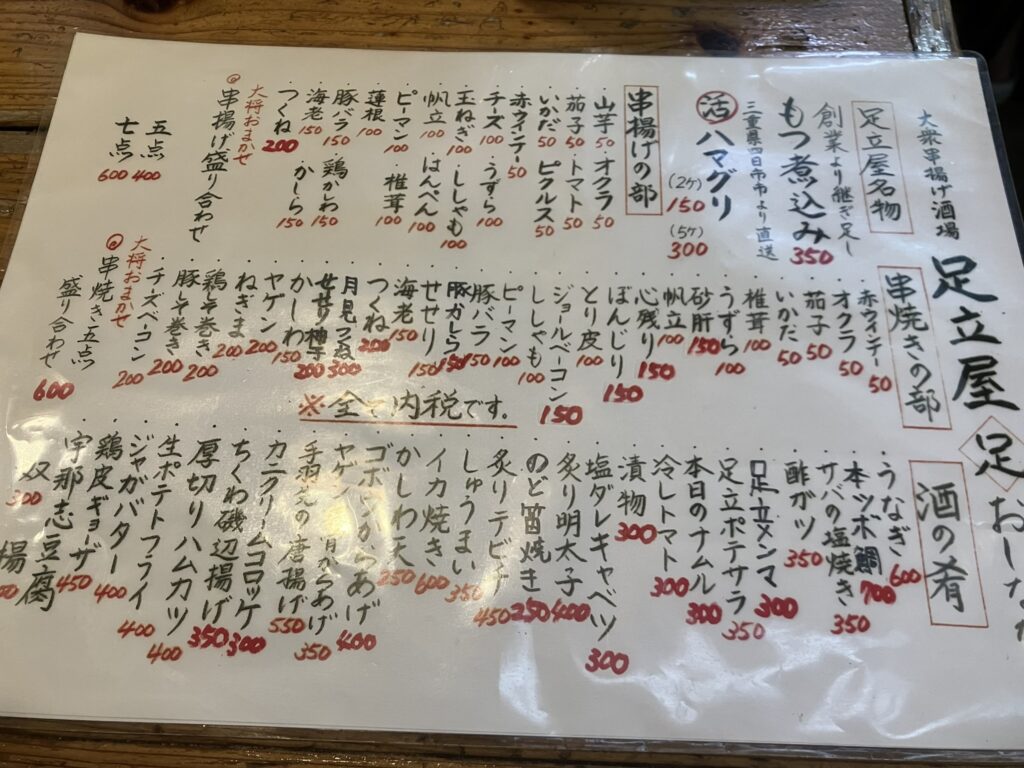 大衆串揚げ酒場
足立屋
足立屋名物
創業より継ぎ足し
もつ煮込み 350
三重県四日市市より直送
活 ハマグリ
(2ケ) 150
(5ケ) 300
串揚げの部
山芋 50
オクラ 50
茄子 50
トマト 50
いかだ 50
ピクルス 50
赤ウインナー 50
チーズ 100
うずら 100
玉ねぎ 100
ししゃも 100
帆立 100
はんぺん 100
ピーマン 100
椎茸 100
蓮根 100
豚バラ 150
鶏かしわ 150
海老 150
かしら 150
つくね 200
大将おまかせ
串揚げ盛り合わせ
五点 400
七点 600
串焼きの部
赤ウインナー 50
オクラ 50
茄子 50
いかだ 50
椎茸 100
うずら 100
砂肝 150
帆立 100
心残り 150
ぼんじり 150
とり皮 100
ジョールベーコン 150
ししゃも 100
ピーマン 100
豚バラ 150
豚カシラ 150
せせり 150
海老 150
つくね 200
月見つくね 300
せせり柚子 200
かしわ 150
ヤゲン 200
ねぎま 200
鶏しそ巻き 200
豚しそ巻き 200
チーズベーコン 200
大将おまかせ
串焼き五点
盛り合わせ 600
※全て内税です。
足
酒の肴
うなぎ 600
本ツボ鯛 700
サバの塩焼き 350
酢ガツ 350
足立メンマ 300
足立ポテサラ 350
本日のナムル 300
冷しトマト 300
漬物 300
塩ダレキャベツ 300
炙り明太子 400
のど笛焼き 250
炙りテビチ 450
しゅうまい 350
イカ焼き 600
かしわ天 250
ゴボウからあげ 400
手羽元の唐揚げ 550
カニクリームコロッケ 300
ちくわ磯辺揚げ 350
厚切りハムカツ 400
生ポテトフライ 400
ジャガバター 400
鶏皮ギョーザ 450
宇那志豆腐 300